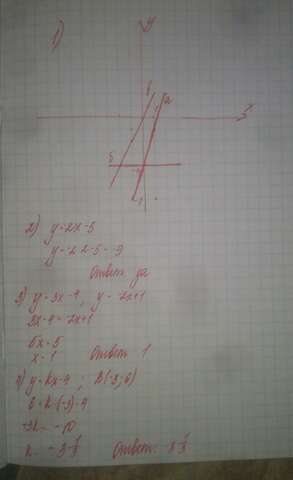 1)
y
b
a
x
5
2) y=2x-5
y=2·2-5=-9
Ответ: да
3) y=3x-4, y=-2x+1
3x-4=-2x+1
5x=5
x=1 Ответ 1
4) y=kx-4; B(-3;6)
6=k·(-3)-4
+3k=-10
k=-3 1/3 Ответ: -3 1/3